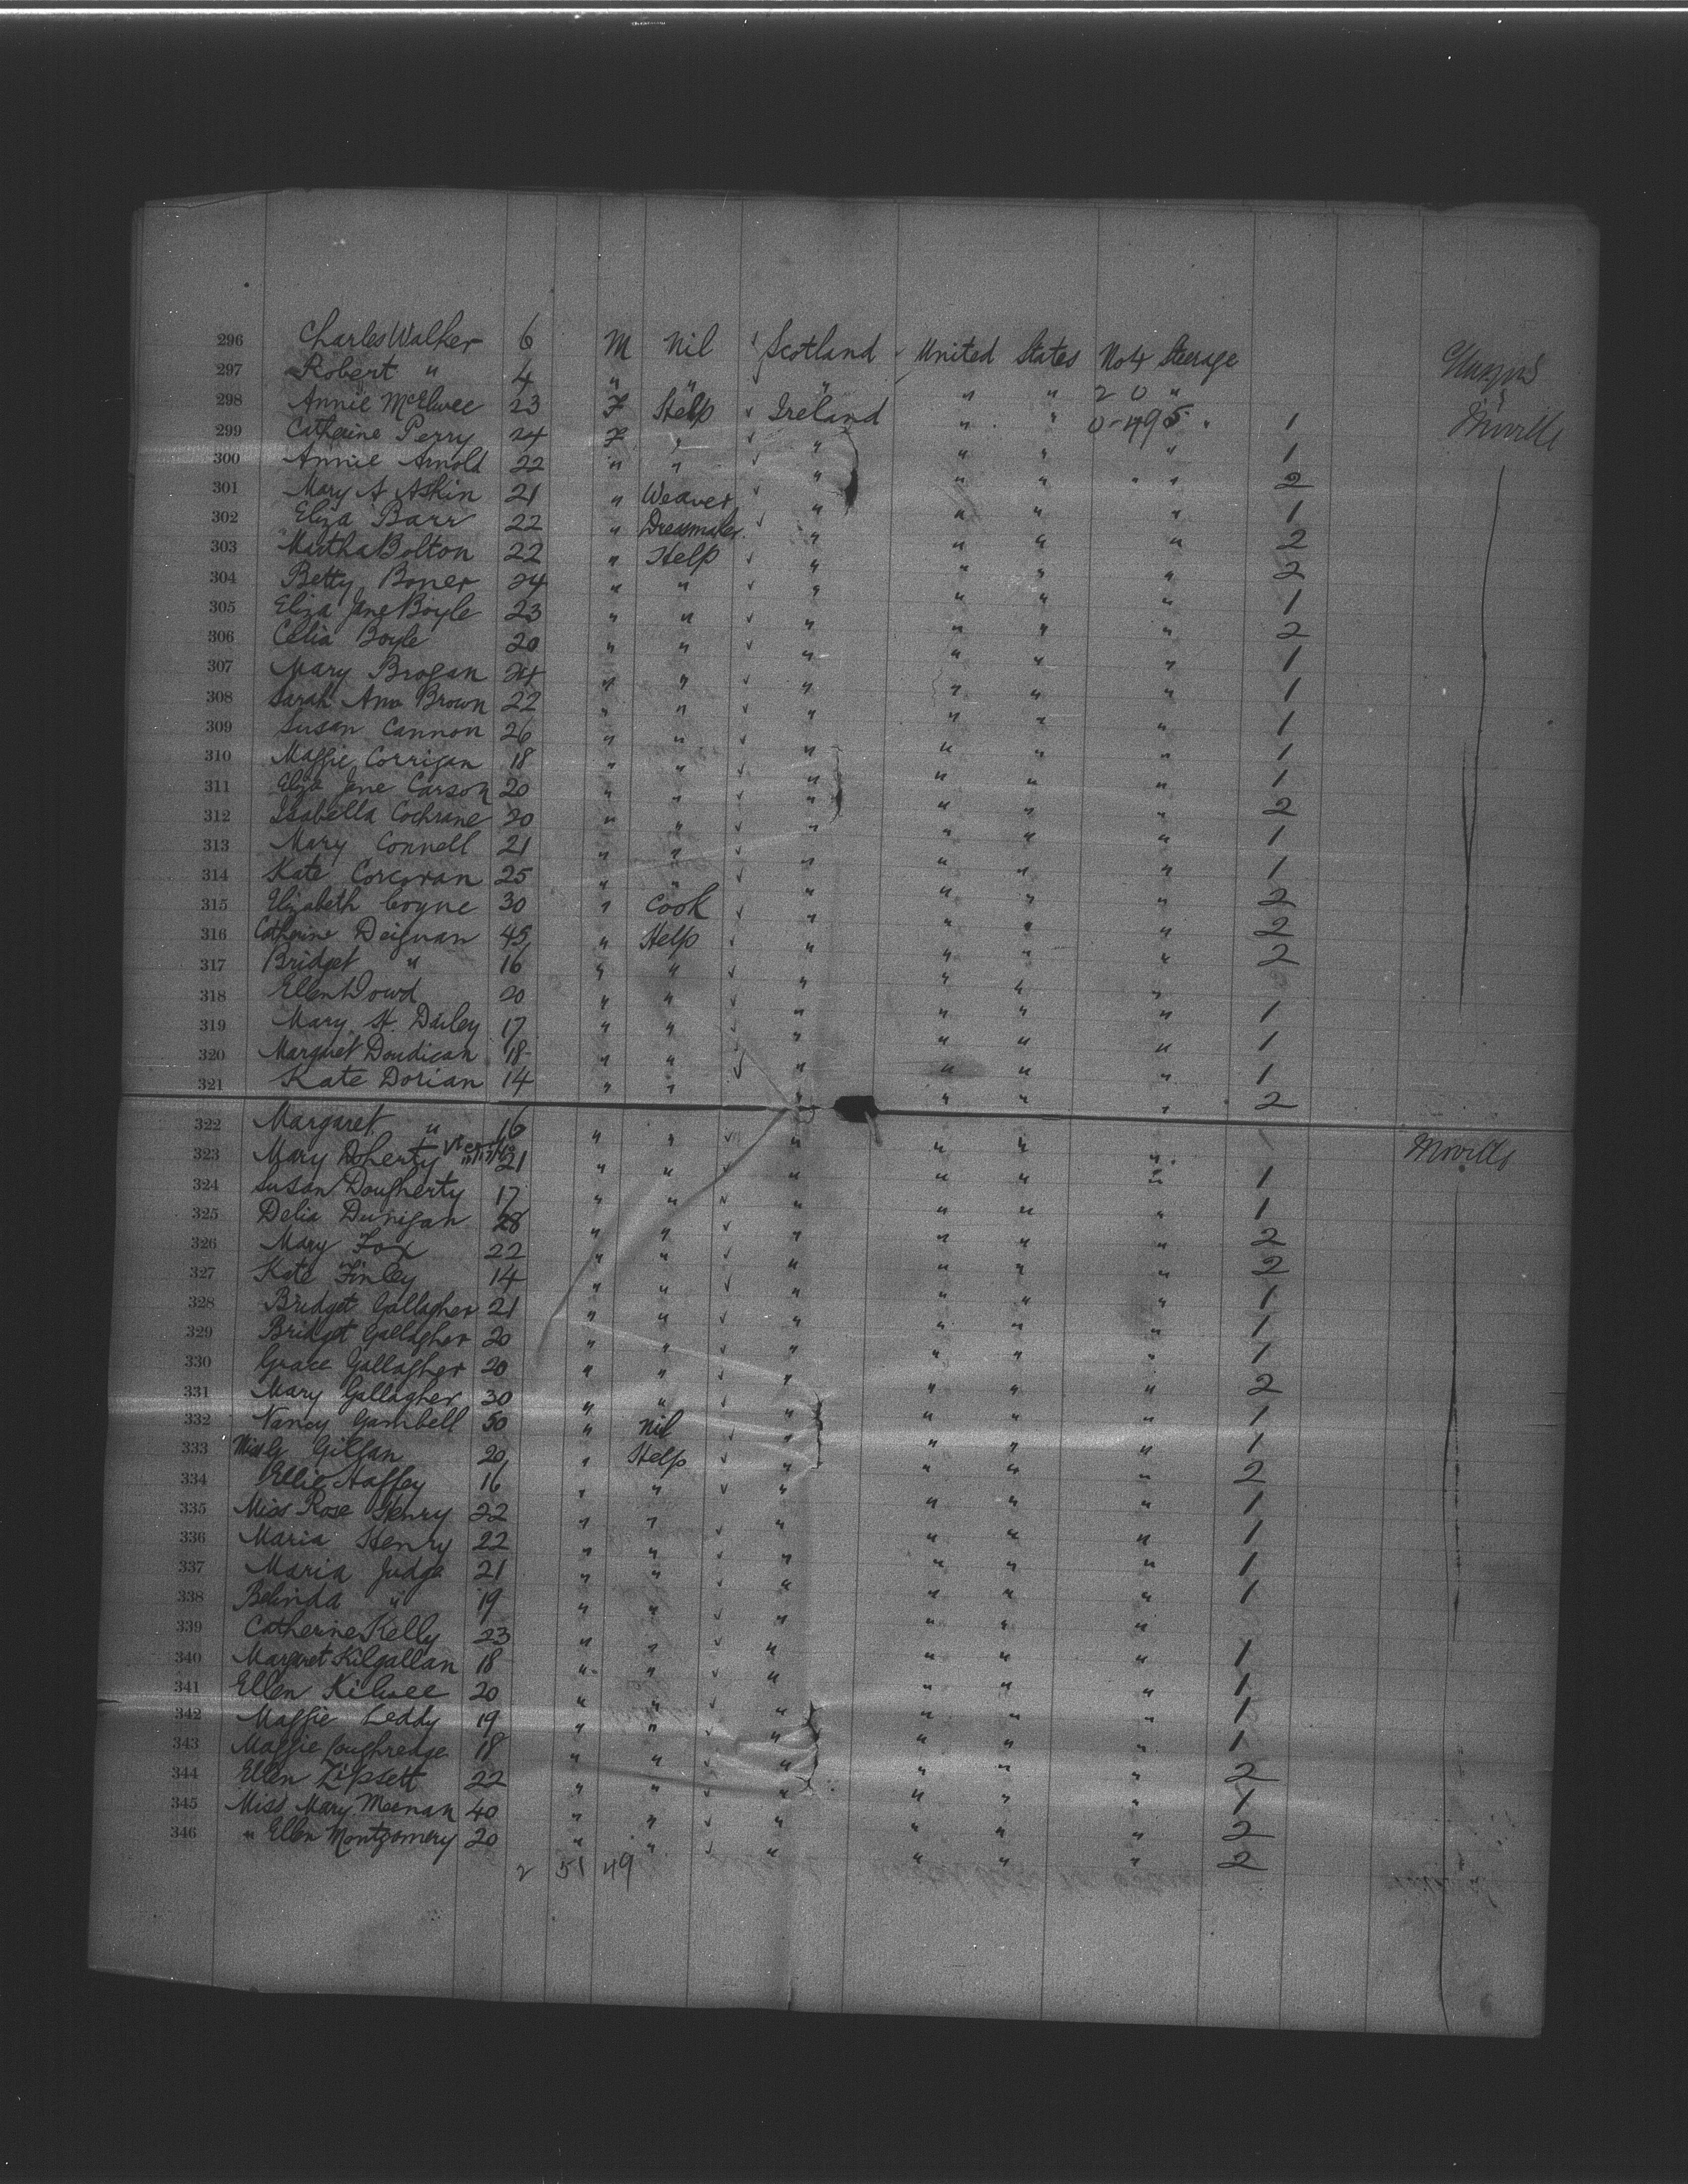 296 Charles Walker 6 M Nil ✓ Scotland United States No 4 Steerage Glasgow
297 Robert " 4 " " ✓ " " " 2 0 "
298 Annie McElwee 23 F Help ✓ Ireland " " 0-495 " 1 Moville
299 Catherine Perry 24 F " ✓ " " " " 1
300 Annie Arnold 22 " " ✓ " " " " " 2
301 Mary A Askin 21 " Weaver ✓ " " " " 1
302 Eliza Barr 22 " Dressmaker ✓ " " " " 2
303 Martha Bolton 22 " Help ✓ " " " " 2
304 Betty Boner 24 " " ✓ " " " " 1
305 Eliza Jane Boyle 23 " " ✓ " " " " 2
306 Celia Boyle 20 " " ✓ " " " " 1
307 Mary Brogan 24 " " ✓ " " " " 1
308 Sarah Ann Brown 22 " " ✓ " " " " 1
309 Susan Cannon 26 " " ✓ " " " " 1
310 Maggie Corrigan 18 " " ✓ " " " " 1
311 Eliza Jane Carson 20 " " ✓ " " " " 2
312 Isabella Cochrane 20 " " ✓ " " " " 1
313 Mary Connell 21 " " ✓ " " " " 1
314 Kate Corcoran 25 " " ✓ " " " " 2
315 Elizabeth Coyne 30 " Cook ✓ " " " " 2
316 Catherine Deignan 45 " Help ✓ " " " " 2
317 Bridget " 16 " " ✓ " " " "
318 Ellen Dowd 20 " " ✓ " " " " 1
319 Mary H. Dailey 17 " " ✓ " " " " 1
320 Margaret Doudican 18 " " ✓ " " " " 1
321 Kate Dorian 14 " " " " " " 2
322 Margaret " 16 " " ✓ " " " "
323 Mary Doherty 21 " " ✓ " " " " 1 Moville
324 Susan Dougherty 17 " " ✓ " " " " 1
325 Delia Dunigan 28 " " ✓ " " " " 2
326 Mary Fox 22 " " ✓ " " " " 2
327 Kate Finley 14 " " ✓ " " " " 1
328 Bridget Gallagher 21 " " ✓ " " " " 1
329 Bridget Gallagher 20 " " ✓ " " " " 1
330 Grace Gallagher 20 " " ✓ " " " " 2
331 Mary Gallagher 30 " " ✓ " " " " 1
332 Nancy Gambell 50 " Nil ✓ " " " " 1
333 Miss G Gilfan 20 " Help ✓ " " " " 2
334 Ellie Haffey 16 " " ✓ " " " " 1
335 Miss Rose Henry 22 " " ✓ " " " " 1
336 Maria Henry 22 " " ✓ " " " " 1
337 Maria Judge 21 " " ✓ " " " " 1
338 Belinda " 19 " " ✓ " " " "
339 Catherine Kelly 23 " " ✓ " " " " 1
340 Margaret Kilgallan 18 " " ✓ " " " " 1
341 Ellen 20 " " ✓ " " " " 1
342 Maggie Leddy 19 " " ✓ " " " " 1
343 Maggie 18 " " ✓ " " " " 2
344 Ellen Lipsett 22 " " ✓ " " " " 1
345 Miss Mary Meenan 40 " " ✓ " " " " 2
346 " Ellen Montgomery 20 " " ✓ " " " " 2
2 51 49